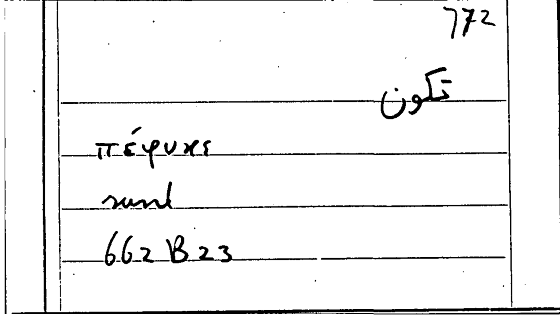 772
تكون
πέφυκε
sunt
662 B 23